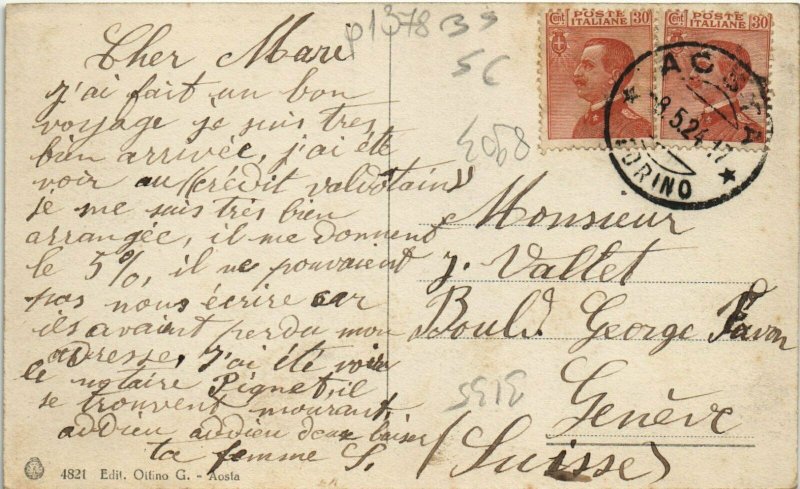 Cher Mari
j'ai fait un bon
voyage je suis tres
bien arrivée, j'ai été
voir au "Crédit valdotain"
je me suis très bien
arrangée, il me donnent
le 5%, il ne pouvaient
pas nous écrire car
ils avaient perdu mon
adresse, j'ai été voir
le notaire Pignet, il
se trouvent mourant,
addieu addieu deux baiser
ta femme S.
p1378 B9
5C
4068
5135
CENT. POSTE ITALIANE 30
CENT. POSTE ITALIANE 30
AOSTA
8.5.24.17
TORINO
Monsieur
J. Vallet
Bould. George Favon
Genève
(Suisse)
4821 Edit. Ottino G. - Aosta